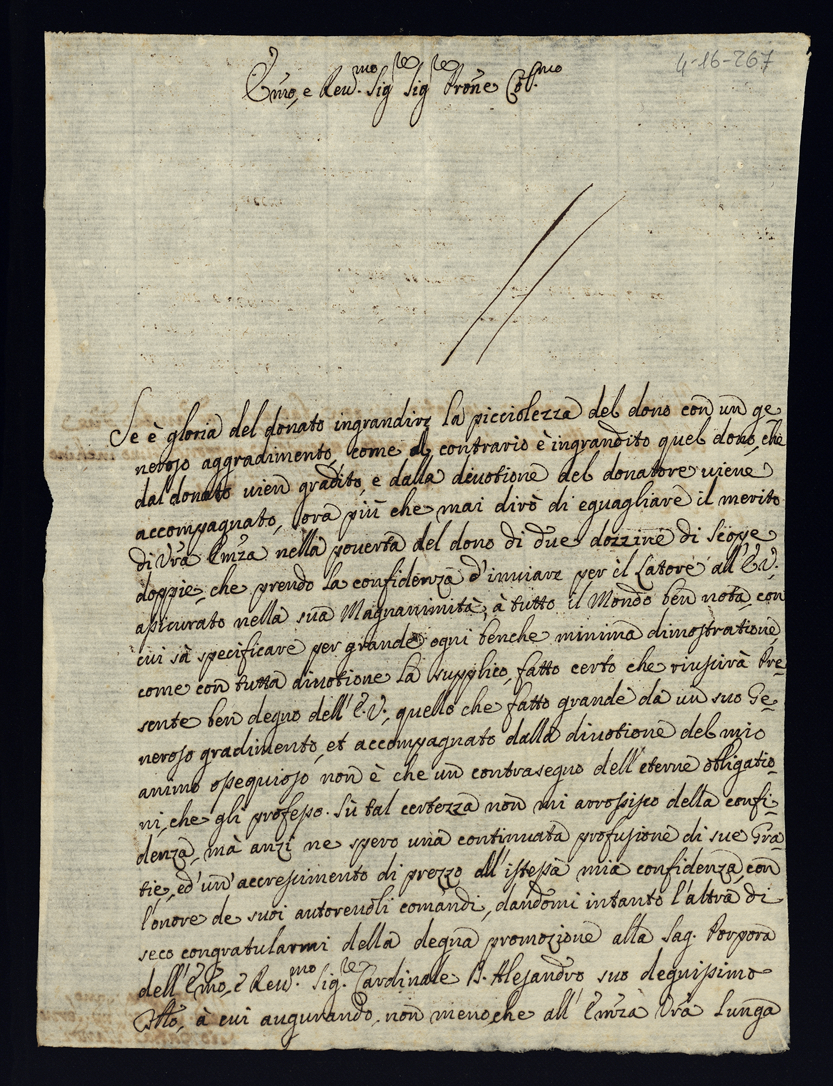 4-16-267
Emo, e Reu.mo Sig.re Sig.re Prone Col.mo
Se è gloria del donato ingrandire la picciolezza del dono con un ge
neroso aggradimento, come al contrario è ingrandito quel dono, che
dal donato uien gradito, e dalla diuotione del donatore uiene
accompagnato, ora più che mai dirò di eguagliare il merito
di Vra Emza nella pouertà del dono di due dozzine di Scope
doppie, che prendo la confidenza d'inuiare per il Latore all'E.V.
asicurato nella sua Magnanimità, à tutto il Mondo ben nota, con
cui sà specificare per grande ogni benche minima dimostratione,
come con tutta diuotione la supplico, fatto certo che riuscirà Pre=
sente ben degno dell'E.V., quello che fatto grande da un suo Ge=
neroso gradimento, et accompagnato dalla diuotione del mio
animo ossequioso non è che un contrasegno dell'eterne obligatio=
ni, che gli professo. Sù tal certezza non mi arrossisco della confi=
denza, mà anzi ne spero una continuata profusione di sue Gra=
tie, ed'un'accrescimento di prezzo all'istessa mia confidenza, con
l'onore de suoi autoreuoli comandi, dandomi intanto l'altra di
seco congratularmi della degna promozione alla Sag. Porpora
dell'Emo, e Reu.mo Sig.re Cardinale D. Alejandro suo degnissimo
à cui augurando, non meno, che all'Emza Vra lunga